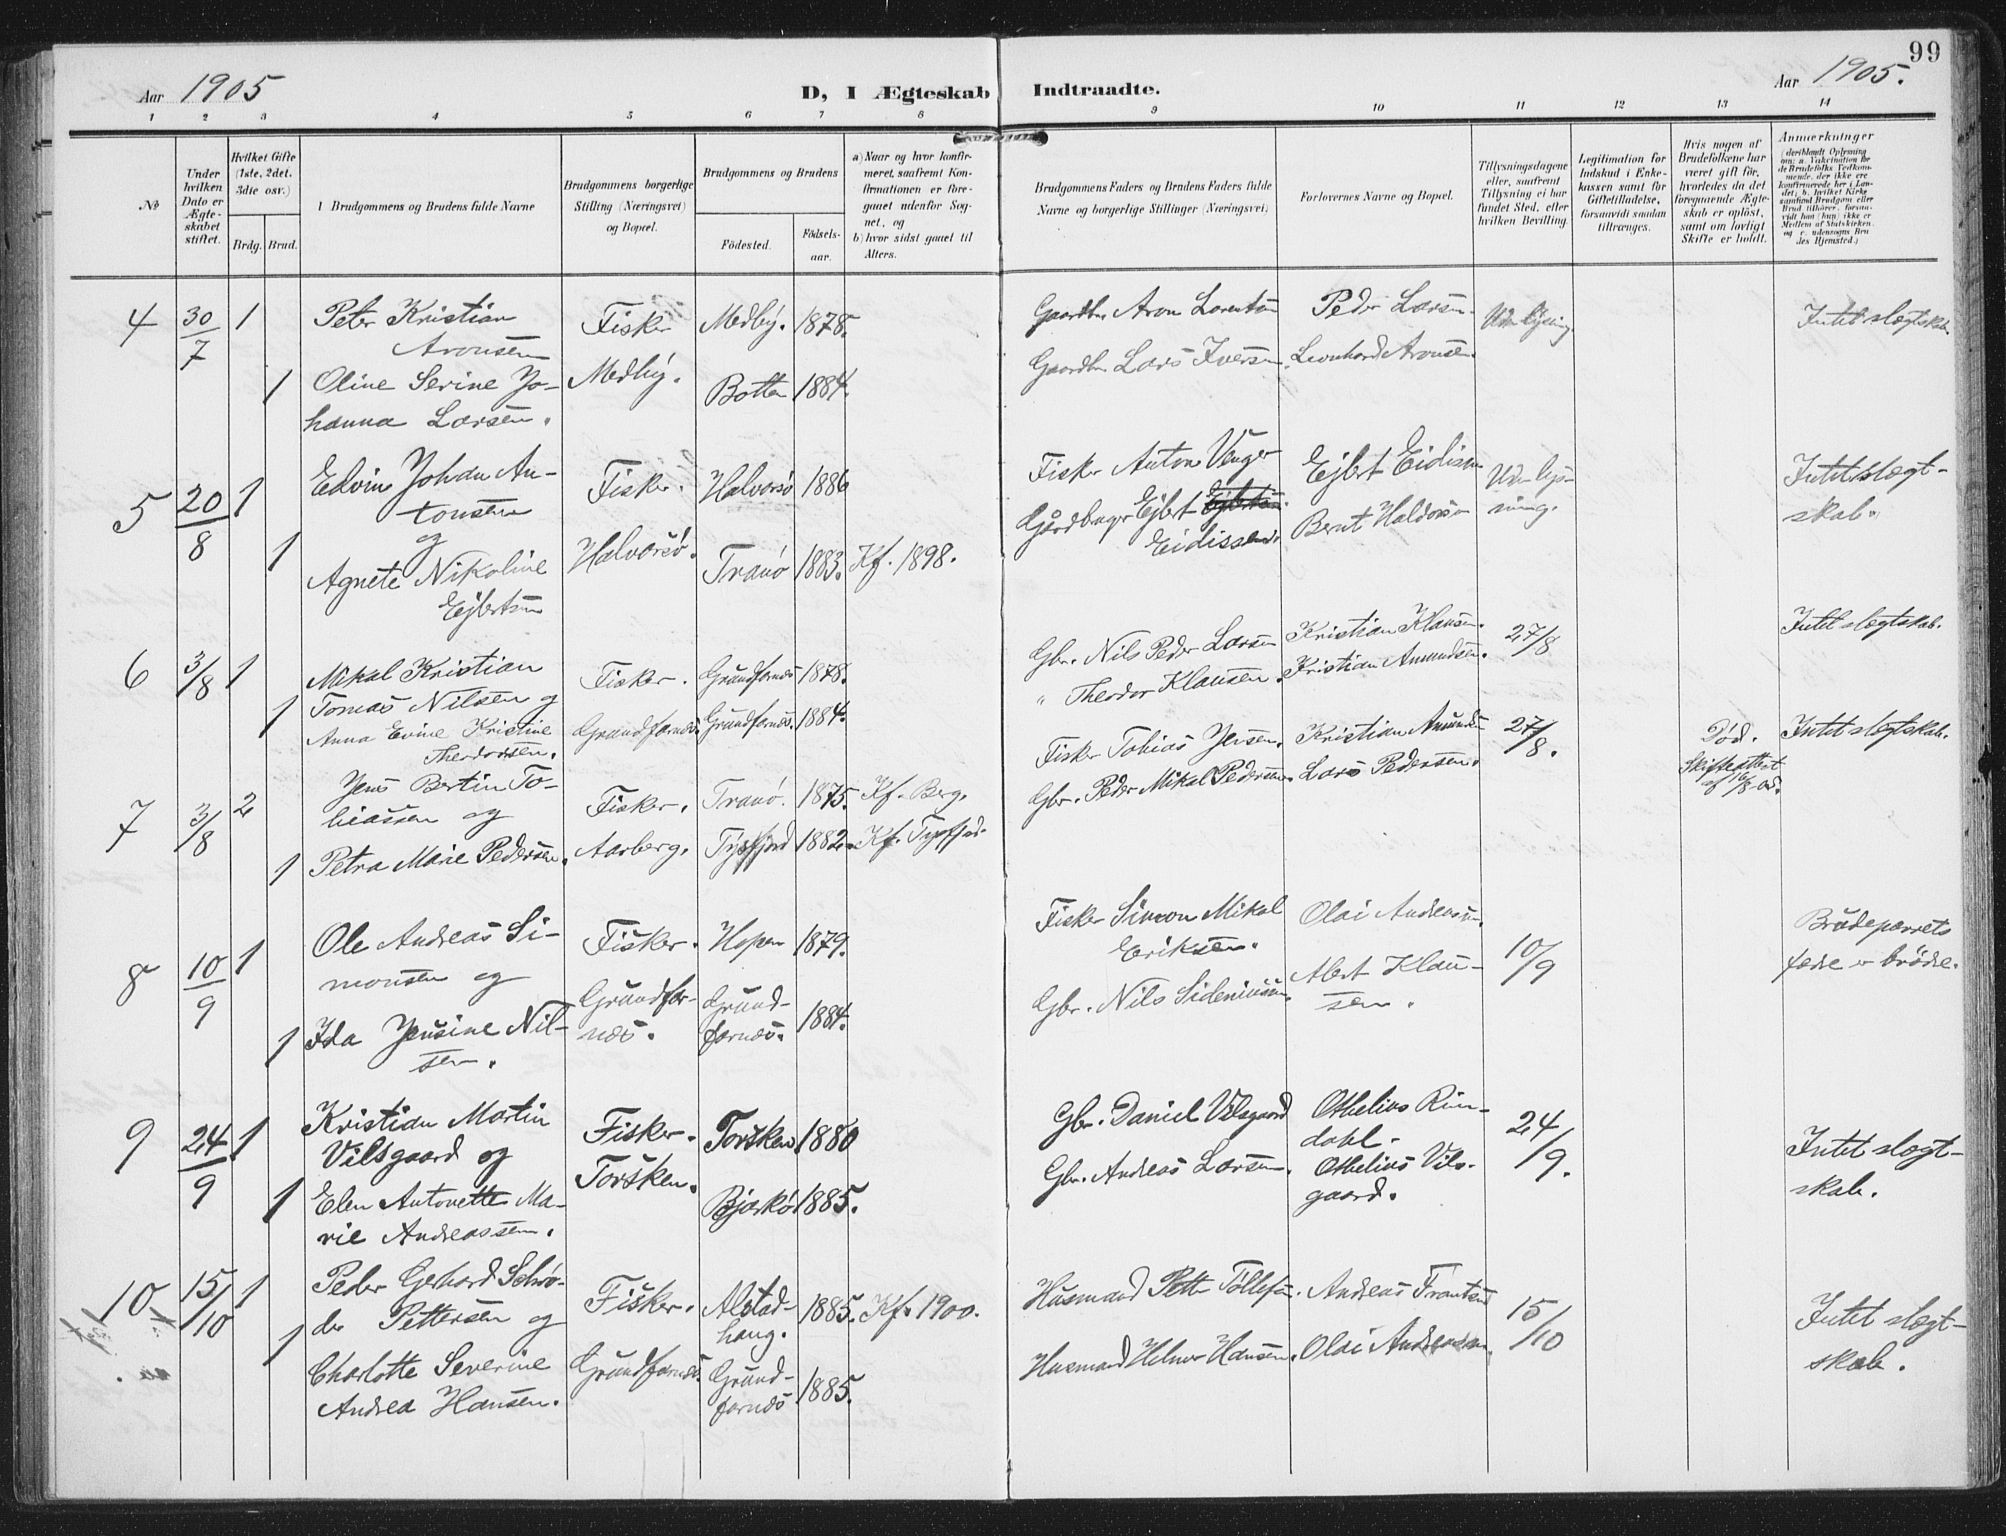 99
Aar 1905
D, I Ægteskab Indtraadte.
Aar 1905.
1 2 3 4 5 6 7 8 9 10 11 12 13 14
No
Under hvilken Dato er Ægteskabet stiftet.
Hvilket Gifte (1ste, 2det, 3die osv.)
Brdg. Brud.
1 Brudgommens og Brudens fulde Navne
Brudgommens borgerlige Stilling (Næringsvei) og Bopæl.
Brudgommens og Brudens
Fødested.
Fødselsaar.
a) Naar og hvor konfirmeret, saafremt Konfirmationen er foregaaet udenfor Sognet, og
b) hvor sidst gaaet til Alters.
Brudgommens Faders og Brudens Faders fulde Navne og borgerlige Stillinger (Næringsvei)
Forlovernes Navne og Bopæl.
Tillysningsdagene eller, saafremt Tillysning ei har fundet Sted, efter hvilken Bevilling
Legitimation for Indskud i Enkekassen samt for Giftetilladelse, forsaavidt saadan tiltrænges.
Hvis nogen af Brudefolkene har været gift før, hvorledes da det foregaaende Ægteskab er opløst, samt om lovligt Skifte er holdt.
Anmerkninger
4 30/7 1 Peter Kristian Fisker Medby. 1878. Gaardbr Aron Lorentsen Peder Larsen. Uden lysning. Intet slægtskab.
Aronsen
1 Oline Serine Jo- Medby. Botten 1884. Gaardbr Lars Iversen Leonhard Aronsen.
hanna Larsen.
5 20/8 1 Edvin Johan An- Fisker. Halvorsø 1886 Fisker Anton Venger Ejlert Eidissen Uden lys- Intet slægt-
tonsen Gårdbruger Ejlert Ejlertsen Bernt Haldorsen ning. skab.
og Eidissen.
1 Agnete Nikoline Halvorsø. Tranø 1883. Kf. 1898.
Ejlertsen
6 3/8 1 Mikal Kristian Fisker. Grundfarnes 1878. Gbr. Nils Peder Larsen Kristian Klausen. 27/8 Intet slægtskab.
1 Tomas Nilsen og " Theodor Klausen. Kristian Amundsen.
Anna Evine Kristine Grundfarnes Grundfarnes. 1884.
Theodorsen.
7 3/8 2 Jens Bertin To- Fisker. Tranø. 1875. Kf. Berg. Fisker Tobias Jensen. Kristian Amundsen 27/8. Død. Intet slægtskab.
biassen og Skifteattest af 16/8-05.
1 Petra Marie Pedersen. Aarberg. Tysfjord 1882. Kf. Tysfjord. Gbr. Peder Mikal Pedersen. Lars Pedersen.
8 10/9 1 Ole Andreas Si- Fisker. Hopen 1879. Fisker Simon Mikal Olai Andreassen. 10/9 Brudeparrets
monsen og Eriksen. fædre er brødre.
1 Ida Jensine Nil- Grundfar- Grund- 1884. Gbr. Nils Sideniussen. Albert Klau-
sen. nes. farnes. sen.
9 24/9 1 Kristian Martin Fisker. Torsken 1880 Gbr. Daniel Vilsgaard Othelius Rin- 24/9. Intet slægt-
Vilsgaard og Torsken. dahl. skab.
1 Elen Antonette Ma- Bjarkø 1885. Gbr. Andreas Larsen. Othelius Vils-
rie Andreassen. gaard.
10 15/10 1 Peder Gerhard Schrø- Fisker. Alstad- 1885. Kf. 1900. Husmand Petter Tollefsen. Andreas Frantsen 15/10 Intet slægt-
der Pettersen og haug. skab.
1 Charlotte Severine Grundfarnes Grund- 1885. Husmand Helmer Hansen. Olai Andreassen.
Andrea Hansen. farnes